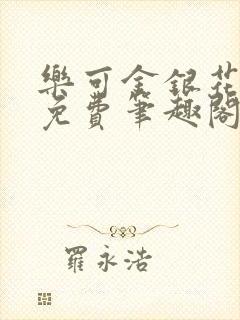 樂可金銀花
免費筆趣閣
羅永浩